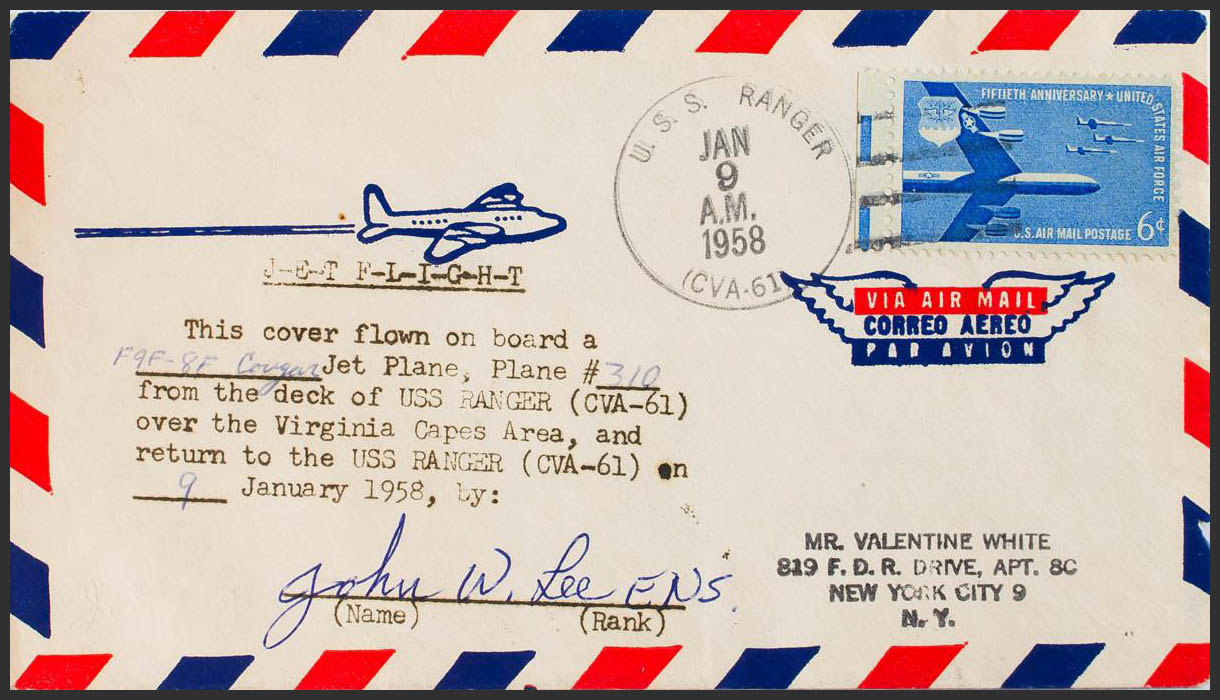 U.S.S. RANGER
JAN
9
A.M.
1958
(CVA-61)
FIFTIETH ANNIVERSARY ★ UNITED STATES AIR FORCE
U.S. AIR MAIL POSTAGE 6¢
VIA AIR MAIL
CORREO AEREO
PAR AVION
J-E-T F-L-I-G-H-T
This cover flown on board a
F9F-8F Cougar Jet Plane, Plane #310
from the deck of USS RANGER (CVA-61)
over the Virginia Capes Area, and
return to the USS RANGER (CVA-61) on
9 January 1958, by:
John W. Lee ENS.
(Name) (Rank)
MR. VALENTINE WHITE
819 F. D. R. DRIVE, APT. 8C
NEW YORK CITY 9
N. Y.